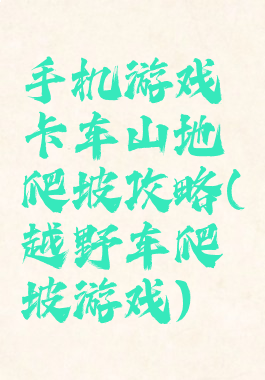 手机游戏
卡车山地
爬坡攻略(
越野车爬
坡游戏)